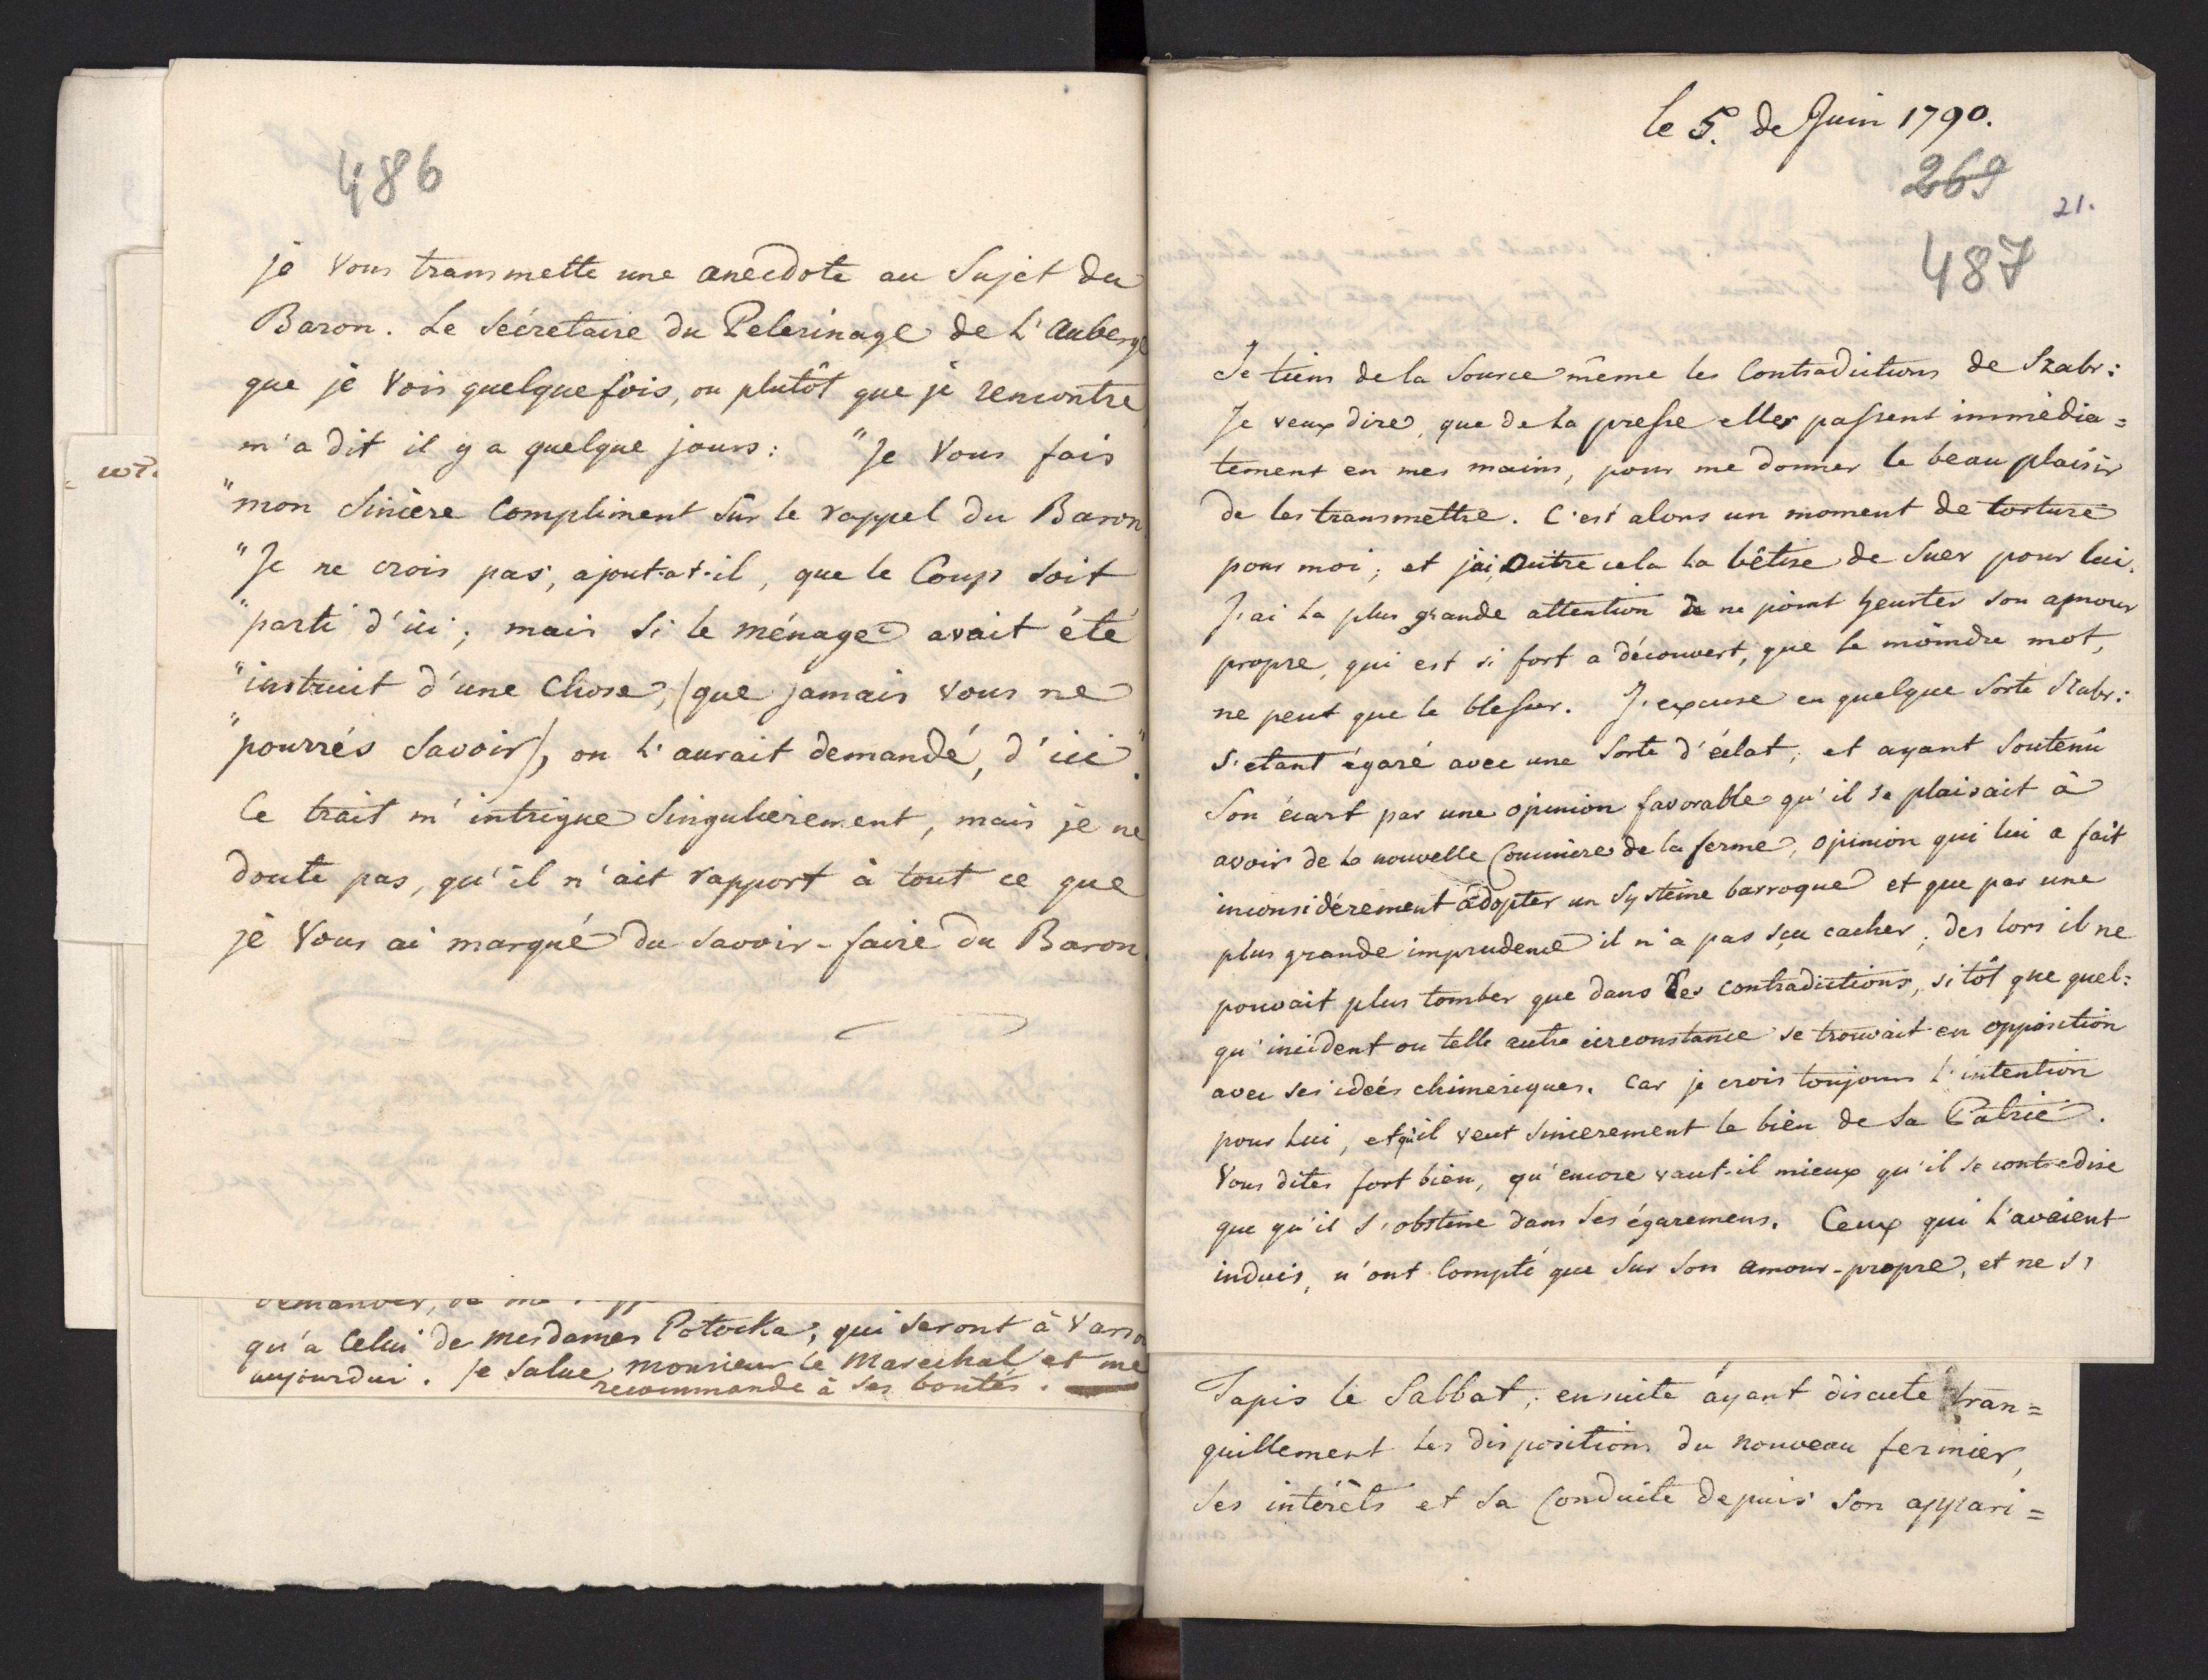 486
je vous transmette une anecdote au Sujet du
Baron. Le Sécretaire du Pelerinage de L'Auberge
que je vois quelquefois, ou plutôt que je rencontre
m'a dit il y a quelque jours: "Je vous fais
"mon Sincère Compliment sûr le rappel du Baron
"Je ne crois pas, ajout-at-il, que le Coup soit
"parti d'ici; mais si le ménage avait été
"instruit d'une Chose, (que jamais vous ne
"pourrés Savoir), on L'aurait demandé, d'ici."
Ce trait m'intrigue Singulierement, mais je ne
doute pas, qu'il n'ait rapport à tout ce que
je vous ai marqué du savoir-faire du Baron
qu'a Celui de mesdames Potocka, qui seront à Varso
aujourdui. Je salue monsieur le Marechal et me
recommande à ses bontés.
le 5. de Juin 1790.
269
21.
487
Je tiens de la Source même les Contradictions de Szabr:
Je veux dire, que de la presse elles passent immédia=
tement en mes mains, pour me donner le beau plaisir
de les transmettre. C'est alors un moment de torture
pour moi; et j'ai, outre cela la bêtise de suer pour lui.
J'ai la plus grande attention de ne point heurter son amour
propre, qui est si fort a découvert, que le moindre mot,
ne peut que le blesser. J'excuse en quelque sorte Szabr:
s'etant égaré avec une sorte d'éclat; et ayant soutenû
Son écart par une opinion favorable qu'il se plaisait à
avoir de la nouvelle Couriere de la ferme, opinion qui lui a fait
inconsidérement adopter un systême barroque et que par une
plus grande imprudence il n'a pas sçu cacher; des lors il ne
pouvait plus tomber que dans des contradictions, sitôt que quel=
qu'incident ou telle autre circonstance se trouvait en opposition
avec ses ideés chimeriques. Car je crois toujours L'intention
pour Lui, et qu'il veut sincerement le bien de sa Patrie.
Vous dites fort bien, qu'encore vaut-il mieux qu'il se contredise
que qu'il s'obstine dans ses égaremens. Ceux qui L'avaient
induis, n'ont Compté que sur son amour-propre, et ne s'
Tapis le Sabbat; ensuite ayant discuté tran=
quillement les dispositions du nouveau fermier,
ses intérêts et sa Conduite depuis son appari=